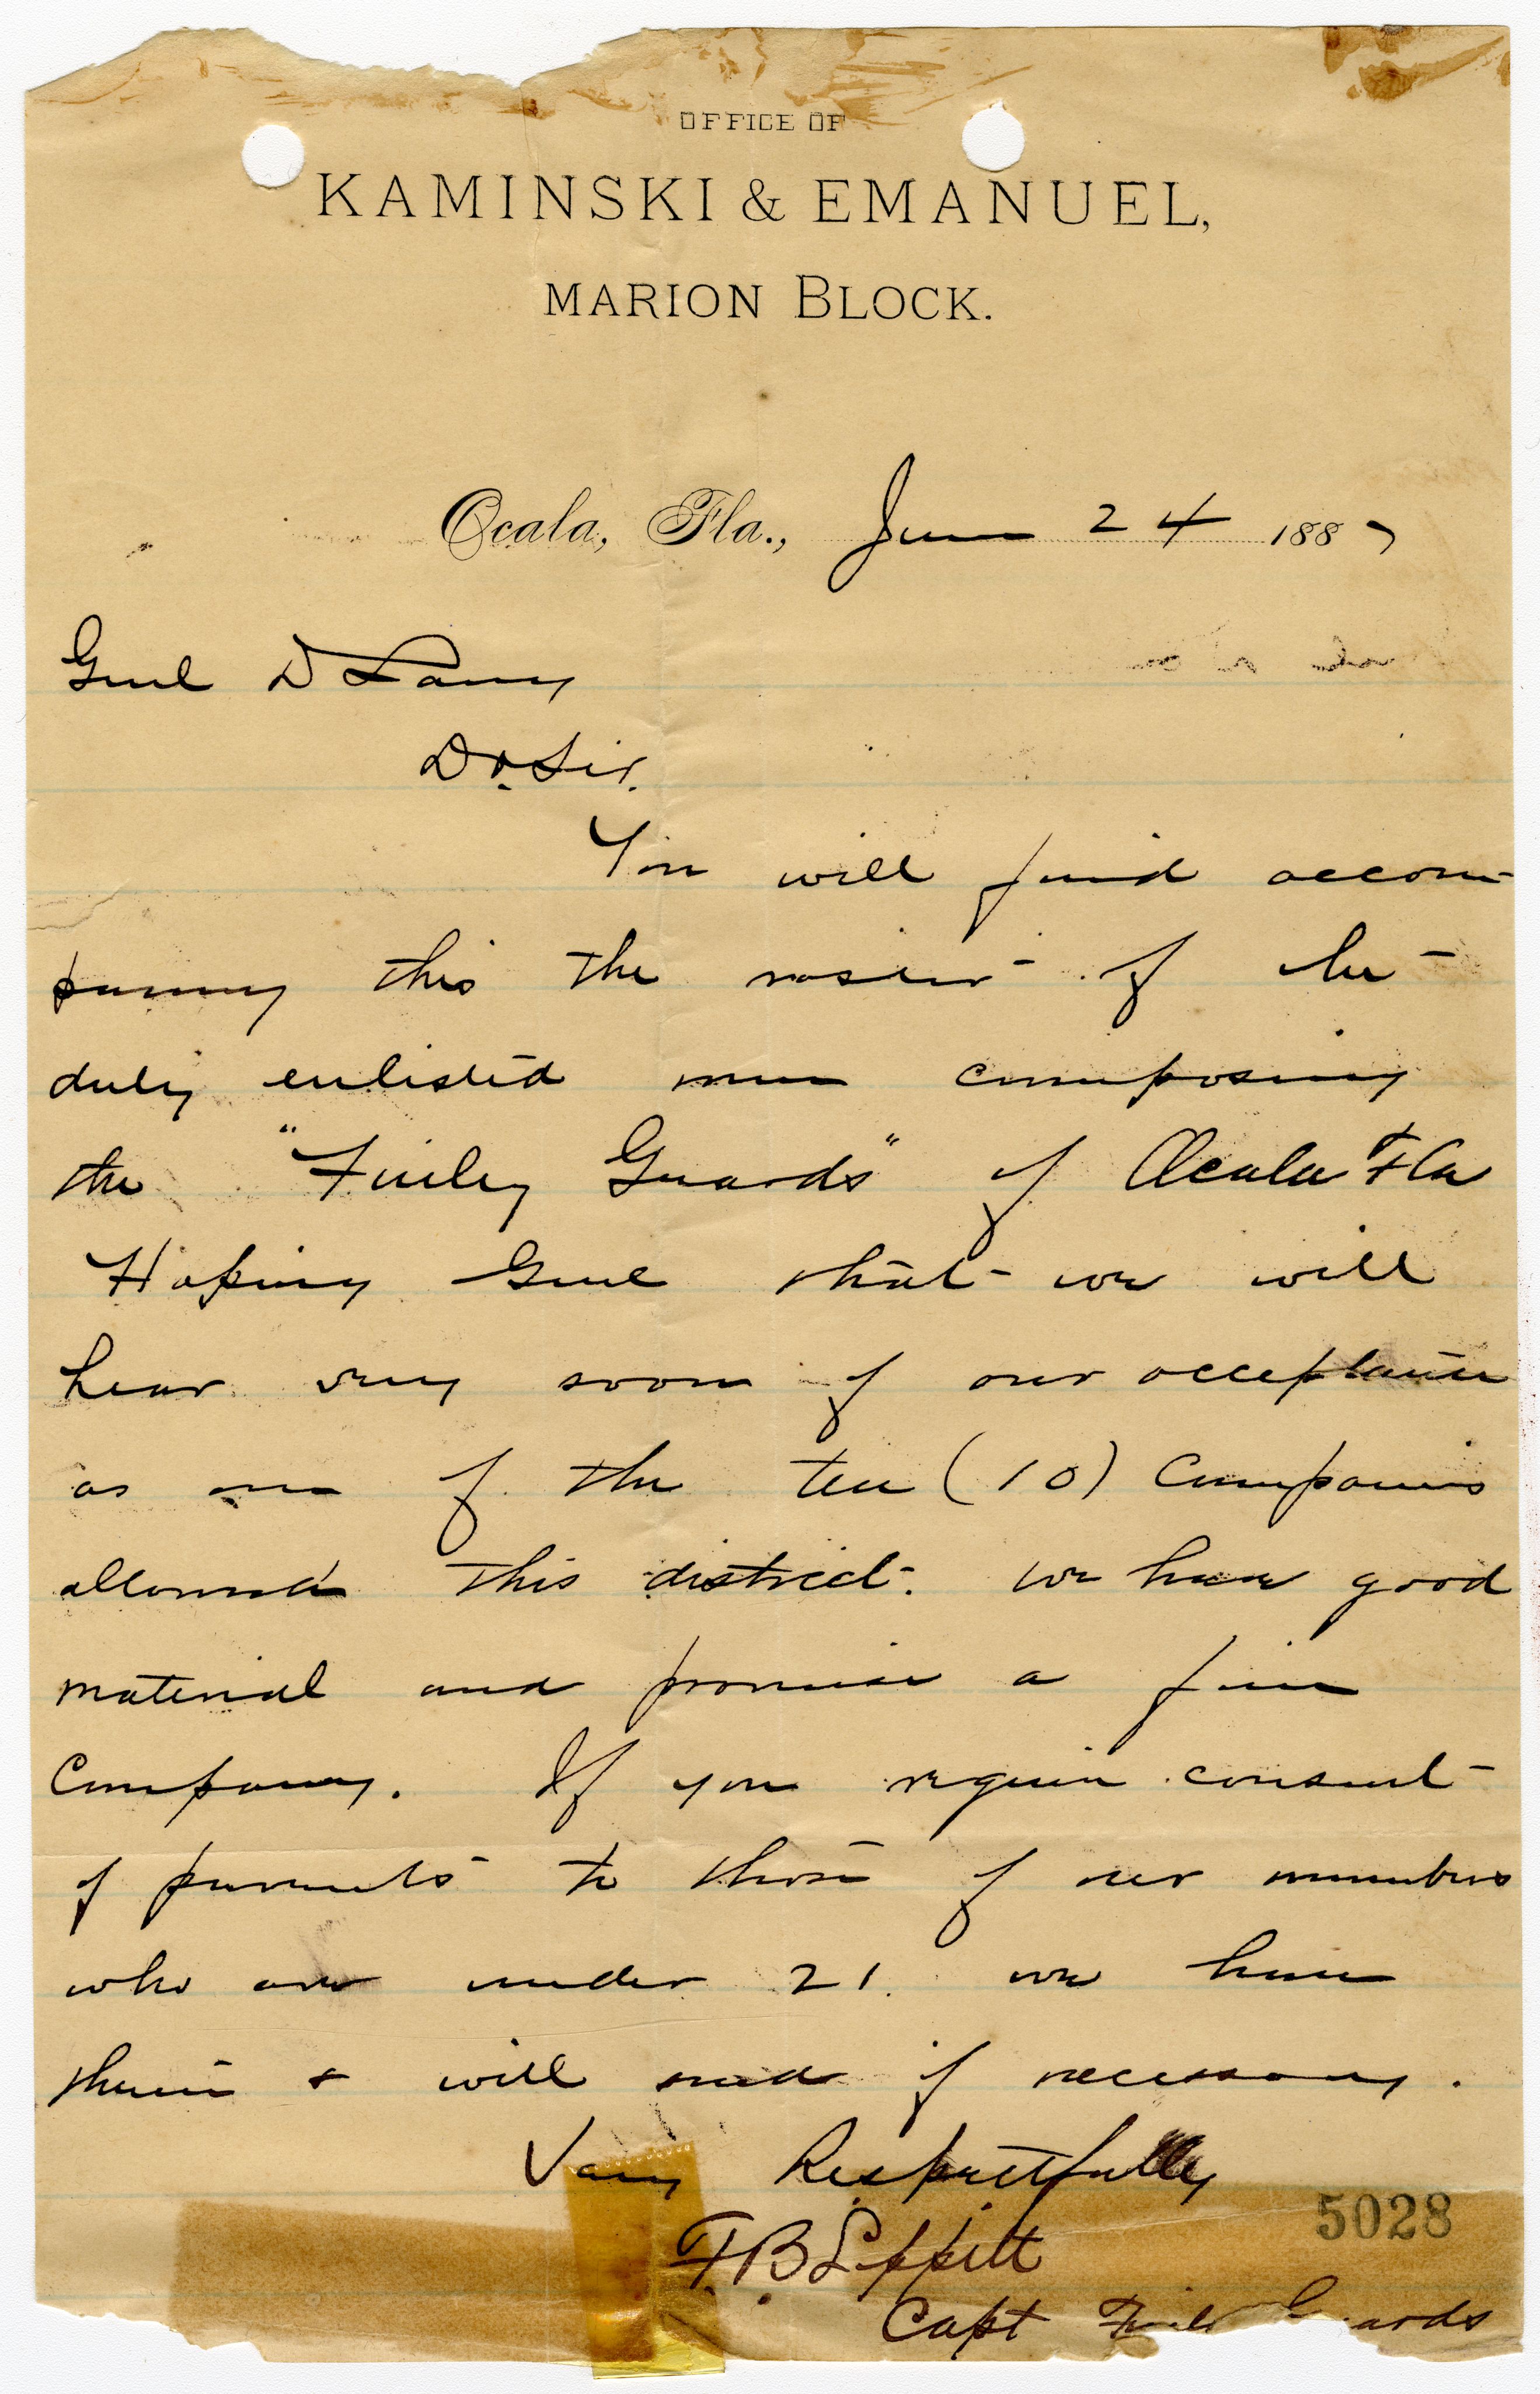 OFFICE OF
KAMINSKI & EMANUEL,
MARION BLOCK.
Ocala, Fla., June 24 1887
Genl D Lang
Dr. Sir.
You will find accom
pany this the roster of the
duly enlisted men composing
the "Finley Guards" of Ocala Fla
Hoping Genl that we will
hear very soon of our acceptance
as one of the ten (10) Companies
allowed this district. We have good
material and promise a fine
Company. If you require consent
of parents to those of our members
who are under 21. we have
them & will send if necessary.
Very Respectfully
F.B. Lippitt
5028
Capt Finley Guards